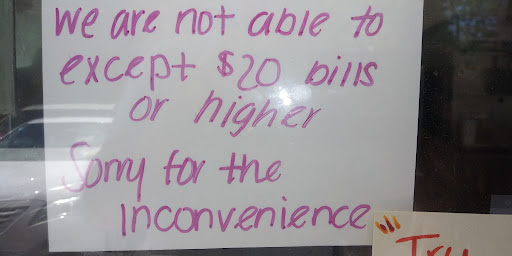 We are not able to
except $20 bills
or higher
Sorry for the
inconvenience
Try